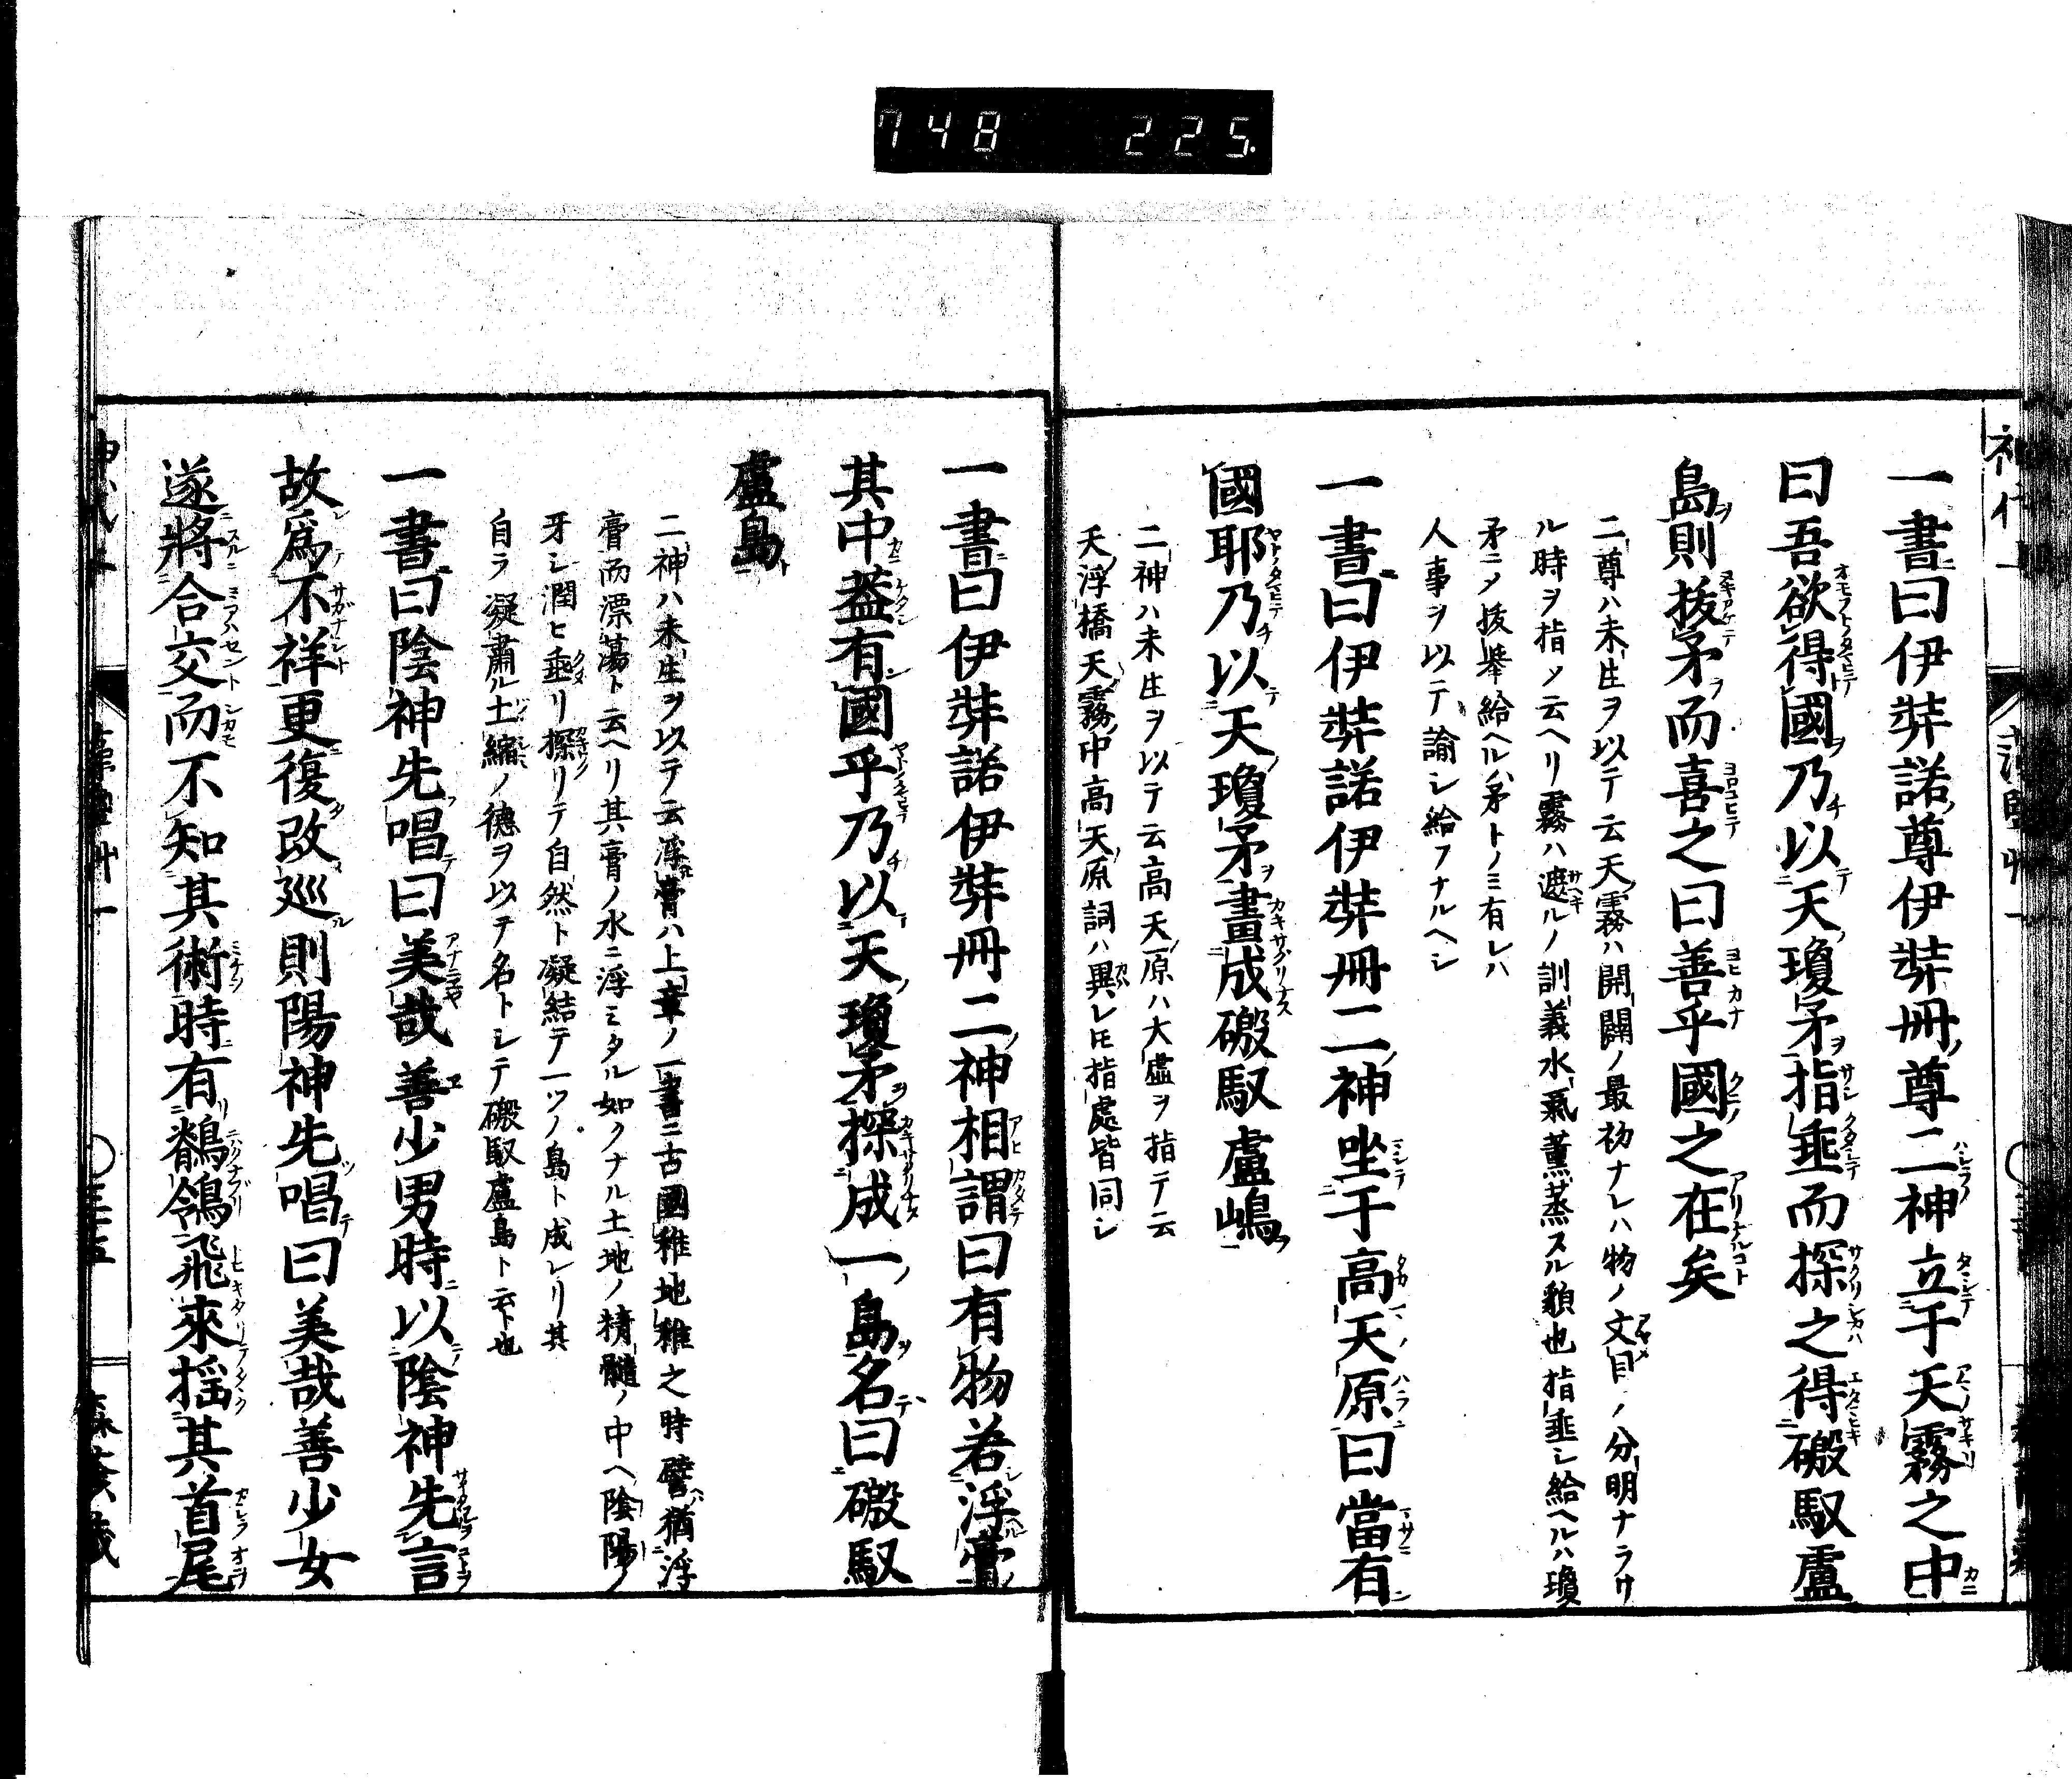 748 225.
一書曰伊弉諾尊伊弉冊尊二神立于天霧之中
曰吾欲得國乃以天瓊矛指垂而探之得磤馭盧
島則拔矛而喜之曰善乎國之在矣
二尊ハ未生ヲ以テ云天霧ハ開闢ノ最初ナレハ物ノ文目ノ分明ナラサ
ル時ヲ指メ云ヘリ霧ハ遮ルノ訓義水氣薰蒸スル貌也指垂シ給ヘルハ瓊
矛ニメ拔擧給ヘルハ矛トノミ有レハ
人事ヲ以テ諭シ給フナルヘシ
一書曰伊弉諾伊弉冊二神坐于高天原曰當有
國耶乃以天瓊矛畫成磤馭盧嶋
二神ハ未生ヲ以テ云高天原ハ大虛ヲ指テ云
天浮橋天霧中高天原詞ハ異レ𪜈指處皆同シ
一書曰伊弉諾伊弉冊二神相謂曰有物若浮膏
其中蓋有國乎乃以天瓊矛探成一島名曰磤馭
盧島
二神ハ未生ヲ以テ云浮膏ハ上章ノ一書ニ古國稚地稚之時譬猶浮
膏而漂蕩ト云ヘリ其膏ノ水ニ浮ミタル如クナル土地ノ精髓ノ中ヘ陰陽ノ
牙シ潤ヒ垂リ探リテ自然ト凝結テ一ツノ島ト成レリ其
自ラ凝肅ル土縮ノ德ヲ以テ名トシテ磤馭盧島ト云ト也
一書曰陰神先唱曰美哉善少男時以陰神先言
故爲不祥更復改巡則陽神先唱曰美哉善少女
遂將合交而不知其術時有鶺鴒飛來搖其首尾